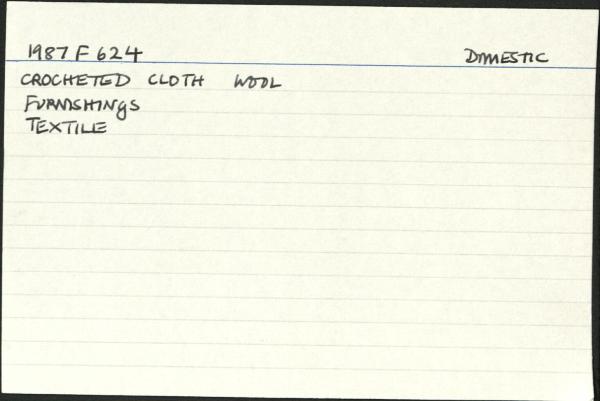 1987 F 624 DOMESTIC
CROCHETED CLOTH WOOL
FURNISHINGS
TEXTILE